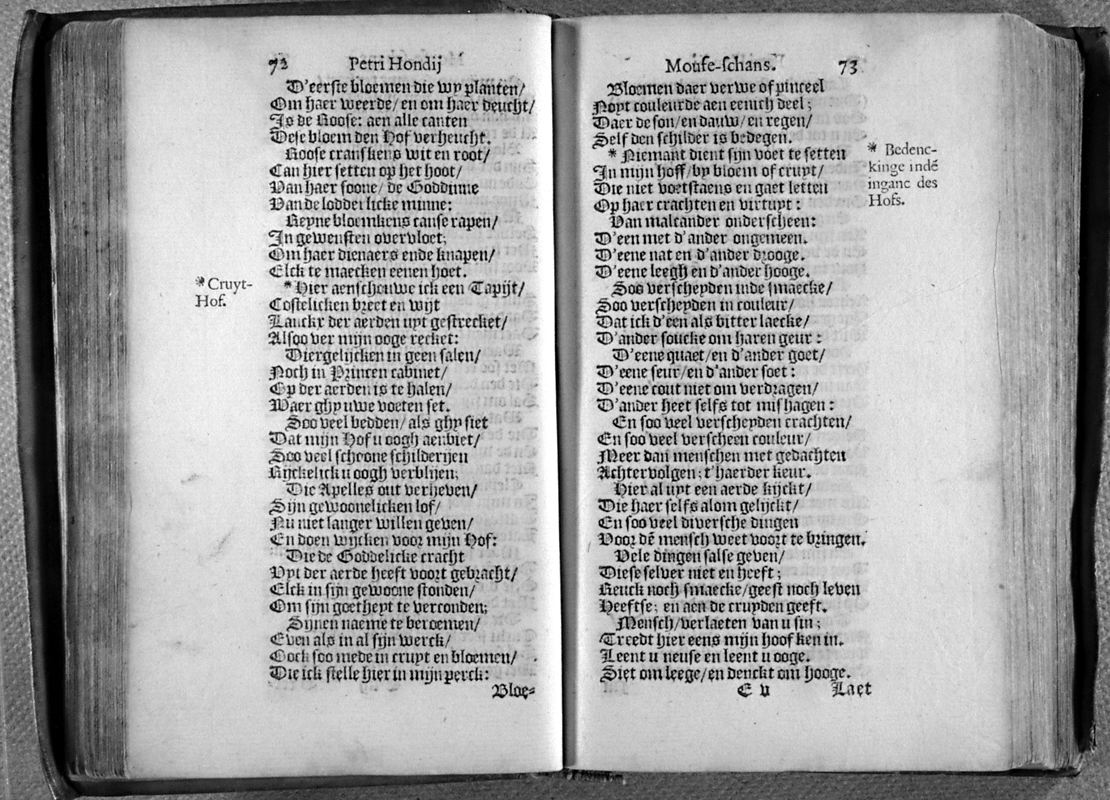 72 Petri Hondij
D'eerste bloemen die wy planten/
Om haer weerde/ en om haer deucht/
Is de Roose: aen alle canten
Dese bloem den Hof verheucht.
Roose cranskens wit en root/
Can hier setten op het hoot/
Van haer soone/ de Goddinne
Van de loddelicke minne:
Reyne bloemkens cans e rapen/
In gewensten overvloet;
Om haer dienaers ende knapen/
Elck te maecken eenen hoet.
* Cruyt-
Hof.
* Hier aenschouwe ick een Tapijt/
Costelicken breet en wijt
Lanckx der aerden uyt gestrecket/
Alsoo ver mijn ooge recket:
Diergelijcken in geen salen/
Noch in Princen cabinet/
Op der aerden is te halen/
Waer ghy uwe voeten set.
Soo veel bedden/ als ghy siet
Dat mijn Hof u oogh aenbiet/
Soo veel schoone schilderijen
Rijckelick u oogh verblijen;
Die Apelles out verheven/
Sijn gewoonelicken lof/
Nu niet langer willen geven/
En doen wijcken voor mijn Hof:
Die de Goddelicke cracht
Vyt der aerde heeft voort gebracht/
Elck in sijn gewoone stonden/
Om sijn goetheyt te verconden;
Sijnen naeme te beroemen/
Even als in al sijn werck/
Oock soo mede in cruyt en bloemen/
Die ick stelle hier in mijn perck:
Bloe-
Mouse-schans. 73
Bloemen daer verwe of pinceel
Noyt couleurde aen eenich deel;
Daer de son/ en dauw/ en regen/
Self den schilder is bedegen.
* Niemant dient sijn voet te setten
In mijn hoff/ by bloem of cruyt/
Die niet voetstaens en gaet letten
Op haer crachten en virtuyt:
* Bedenc-
kinge indē
inganc des
Hofs.
Van malcander onderscheen:
D'een met d'ander ongemeen.
D'eene nat en d'ander drooge.
D'eene leegh en d'ander hooge.
Soo verscheyden inde smaecke/
Soo verscheyden in couleur/
Dat ick d'een als bitter laecke/
D'ander soucke om haren geur:
D'eene quaet/ en d'ander goet/
D'eene seur/ en d'ander soet:
D'eene cout niet om verdragen/
D'ander heet selfs tot mishagen:
En soo veel verscheyden crachten/
En soo veel verscheen couleur/
Meer dan menschen met gedachten
Achtervolgen; t'haerder keur.
Hier al uyt een aerde kijckt/
Die haer selfs alom gelijckt/
En soo veel diversche dingen
Voor dē mensch weet voort te bringen.
Vele dingen salse geven/
Diese selver niet en heeft;
Reuck noch smaecke/ geest noch leven
Heeftse; en aen de cruyden geeft.
Mensch/ verlaeten van u sin;
Treedt hier eens mijn hoof ken in.
Leent u neuse en leent u ooge.
Siet om leege/ en denckt om hooge.
E v Laet